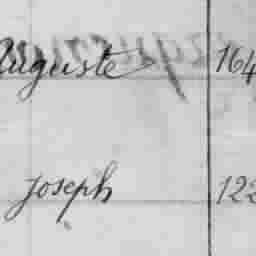 Auguste 164
Joseph 122